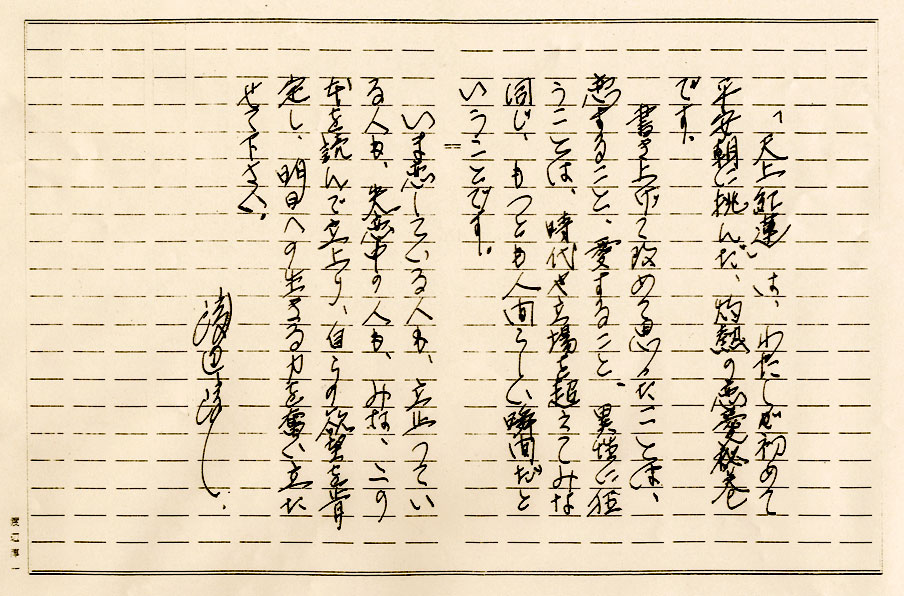 「天上紅蓮」は、わたしが初めて
平安朝に挑んだ、灼熱の恋愛秘巻
です。
書き上げて改めて思ったことは、
恋すること、愛すること、異性に狂
うことは、時代や立場を超えてみな
同じ、もっとも人間らしい瞬間だと
いうことです。
いま恋している人も、立止ってい
る人も、失恋中の人も、みな、この
本を読んで立上り、自らの欲望を肯
定し、明日への生きる力を奮い立た
せて下さい。
渡辺淳一
渡辺淳一